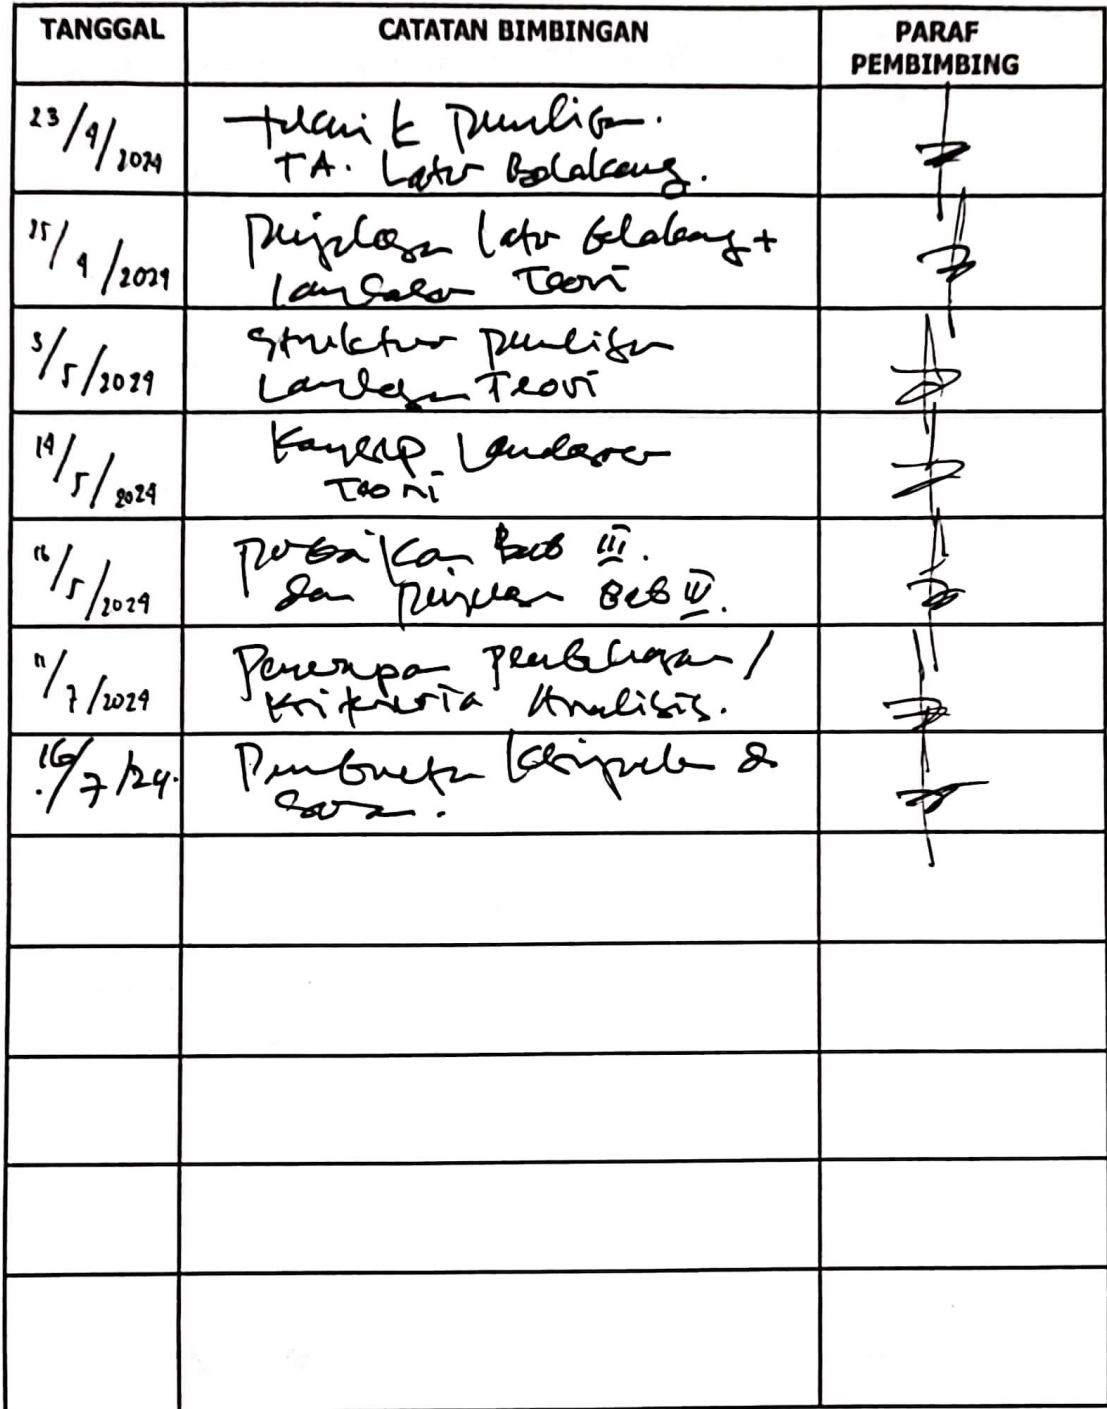 TANGGAL
CATATAN BIMBINGAN
PARAF
PEMBIMBING
23/4/2024
teknik penulisan.
TA. Latar Belakang.
25/4/2024
penjelasan latar belakang +
landasan Teori
3/5/2024
struktur penulisan
Landasan Teori
14/5/2024
Landasan
Teori
16/5/2024
perbaikan Bab III.
dan penjelasan Bab IV.
11/7/2024
Penerapan pembahasan /
Kriteria Analisis.
16/7/24.
Pembuatan kesimpulan &
saran.